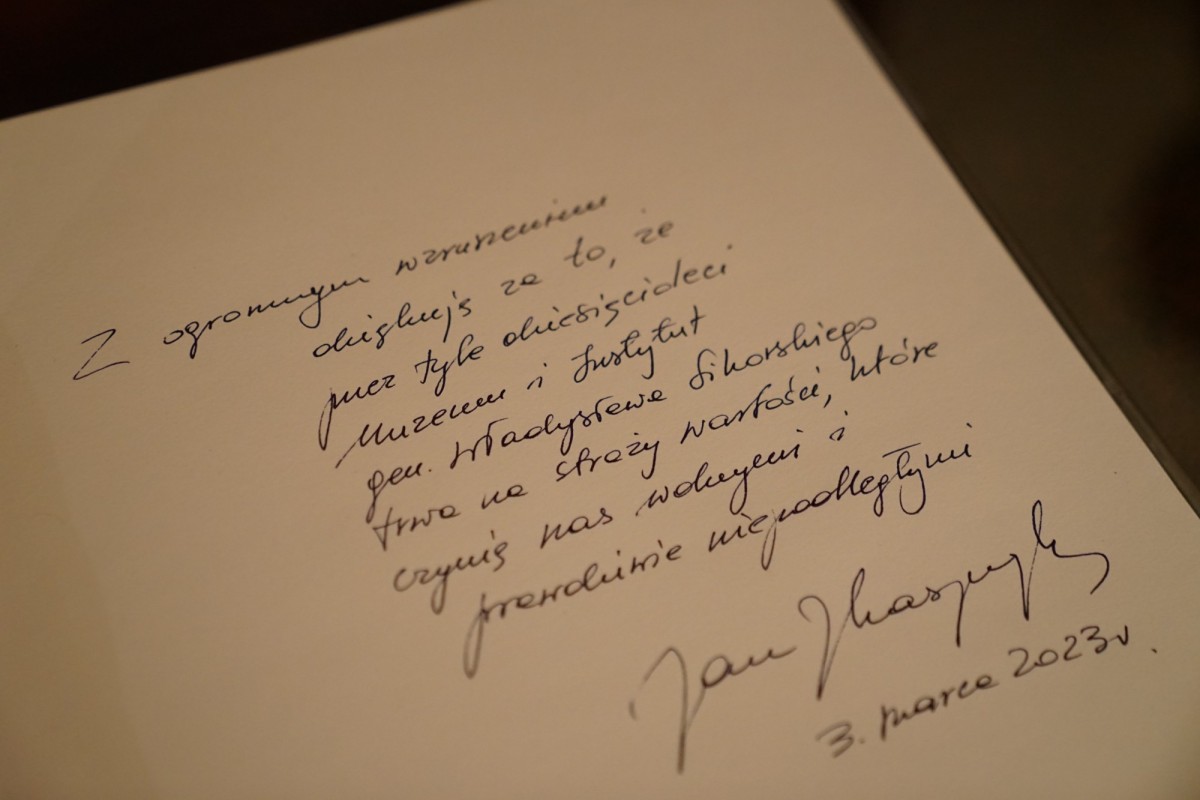 Z ogromnym wzruszeniem
dziękuję za to, że
przez tyle dziesięcioleci
Muzeum i Instytut
gen. Władysława Sikorskiego
trwa na straży wartości, które
czynią nas wolnymi i
prawdziwie niepodległymi
Jan Kasprzyk
3. marca 2023 r.